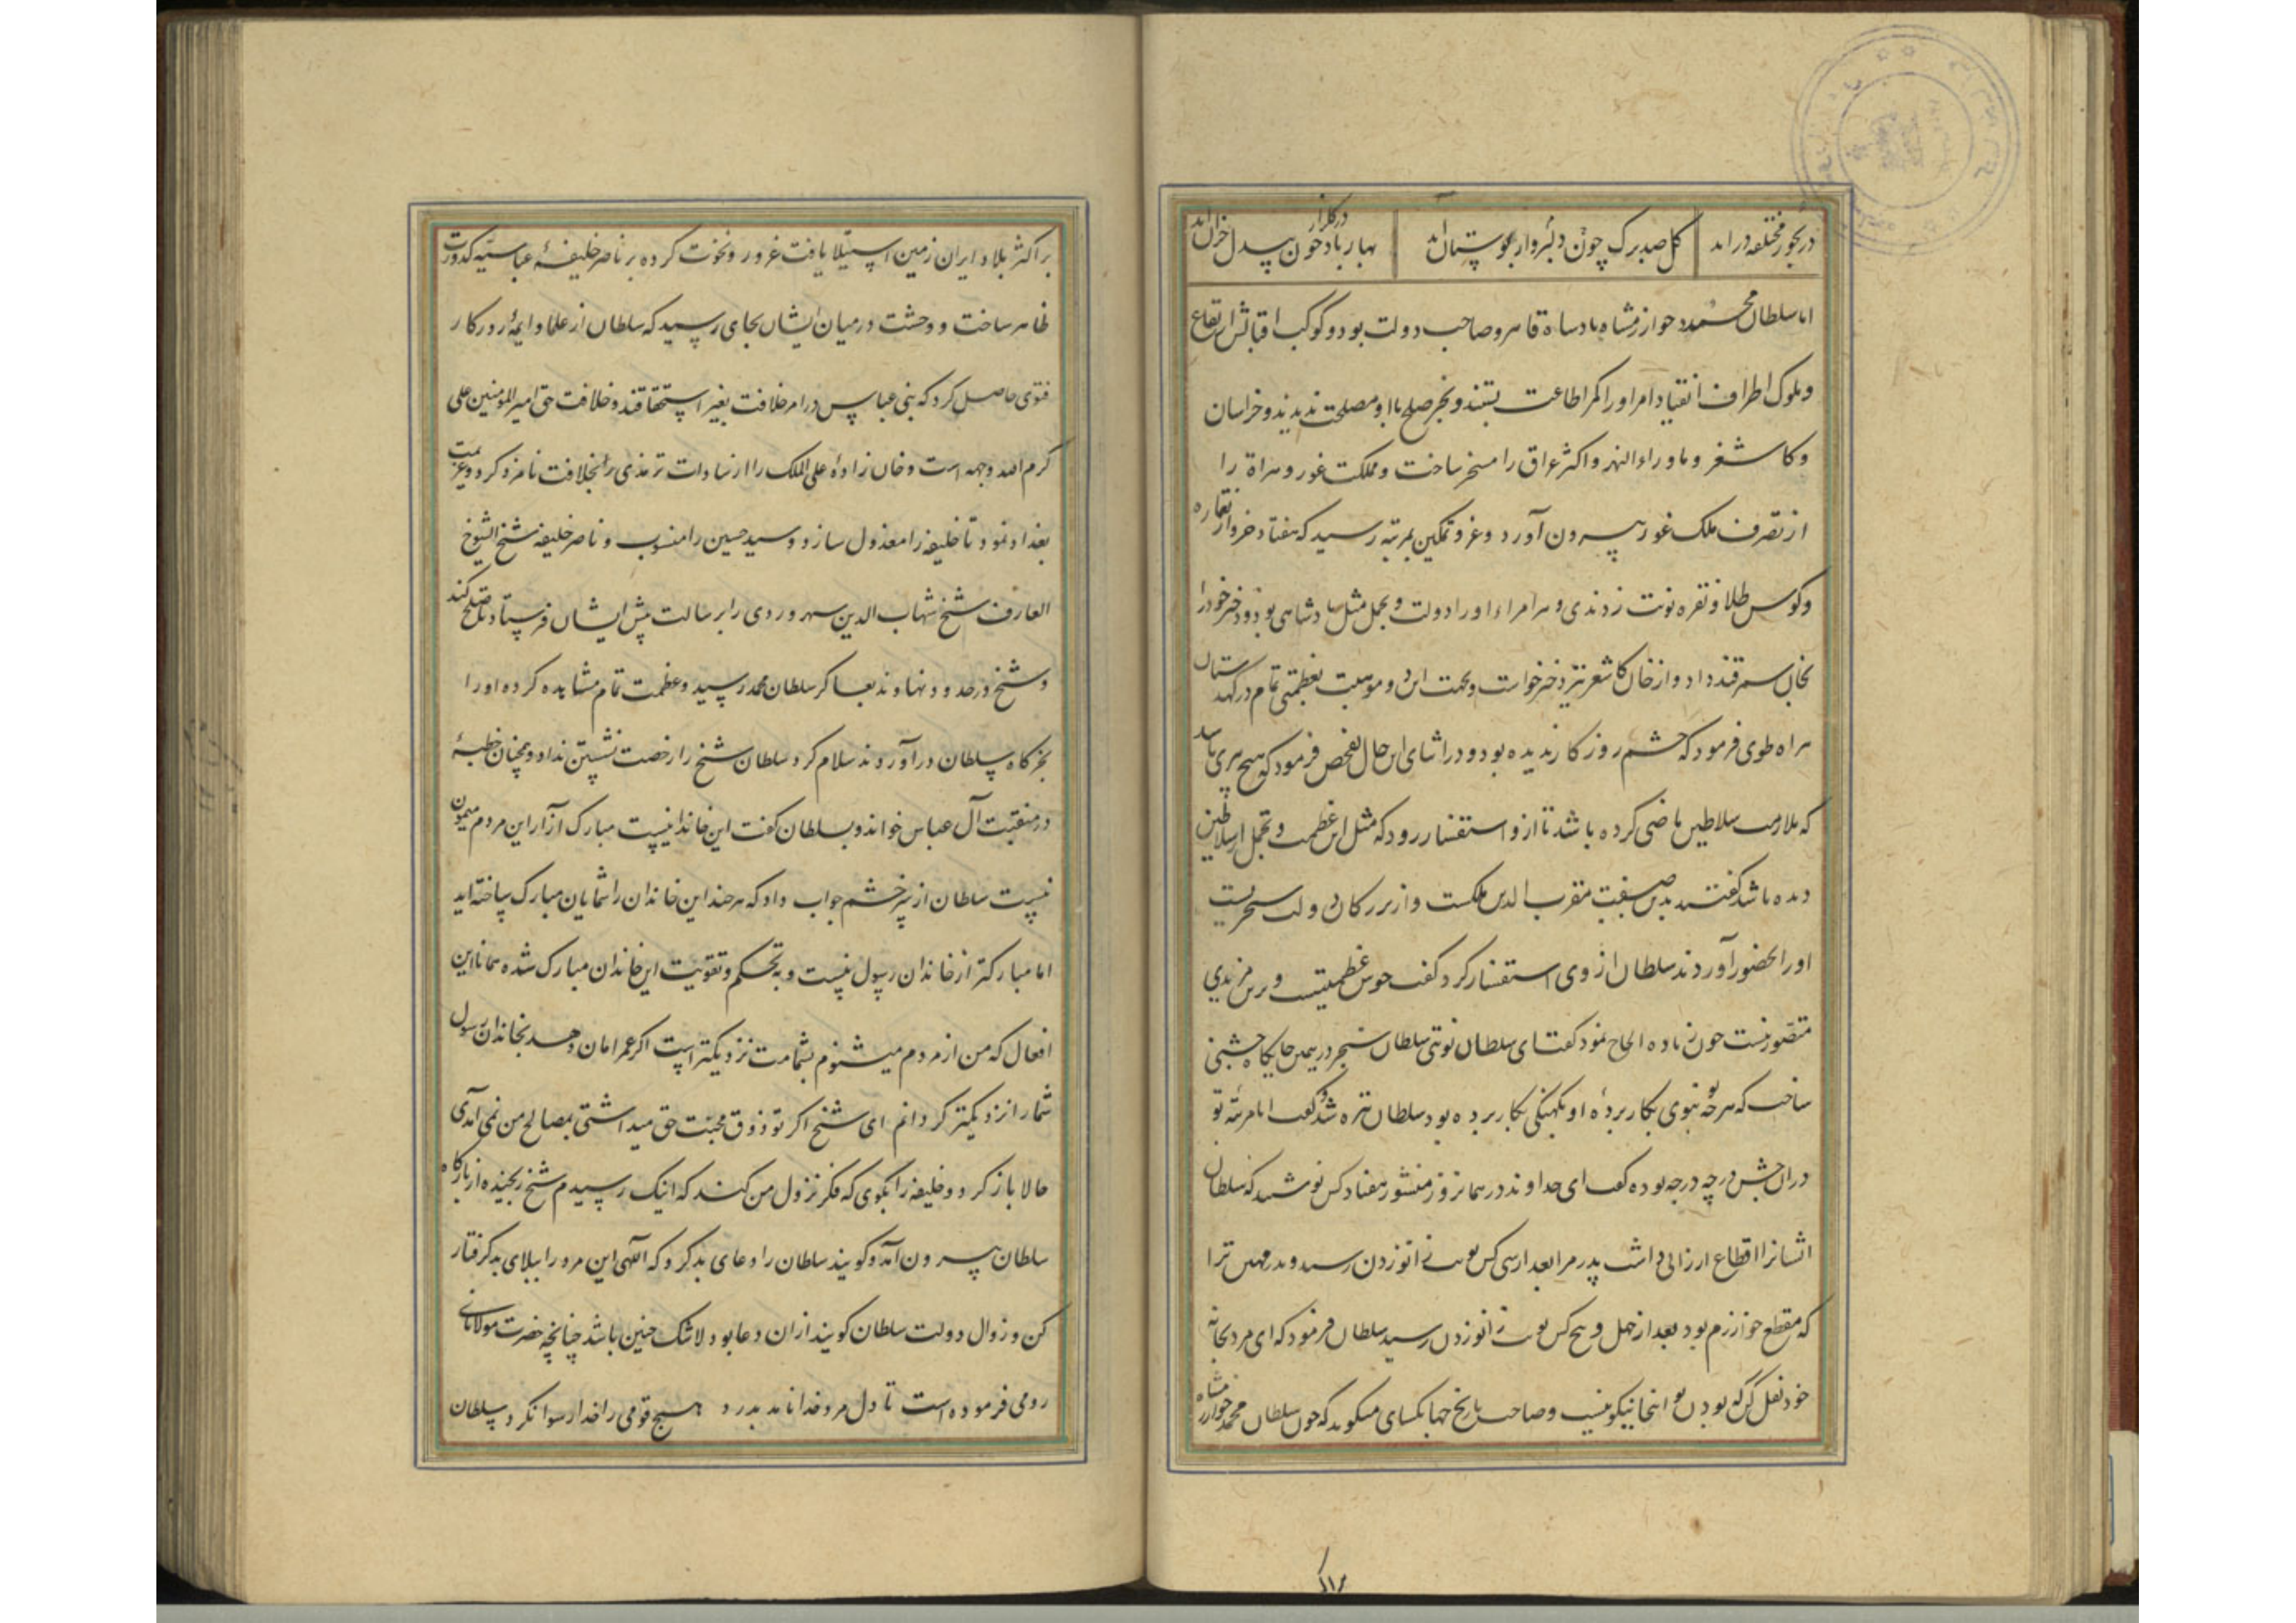 در بحور مختلفه در اند گل صد برگ چون دلبر وار ببوستان آمد بهار باد خون بیدل خزان آمد
در گلزار
اما سلطان محمد خوارزمشاه پادشاه قاهر و صاحب دولت بود و کوکب اقبالش ارتفاع
و ملوک اطراف انقیاد امر او را کمر اطاعت بستند و بجز صلح با او مصلحت ندیدند و خراسان
و کاشغر و ماوراء النهر و اکثر عراق را مسخر ساخت و مملکت غور و هراة را
از تصرف ملک غور بیرون آورد و عز و تمکین بمرتبه رسید که هفتاد خروار نقاره
و کوس طلا و نقره نوبت زدندی و هر امراء او را دولت و تجمل مثل پادشاهی بود و دختر خود را
بخان سمرقند داد و از خان کاشغر نیز دختر خواست و بجهت این و موهبت بعظمتی تمام در کهدستان
هراه طوی فرمود که چشم روزگار ندیده بود و در اثنای این حال تفحص فرمود که هیچ پیری باشد
که ملازمت سلاطین ماضی کرده باشد تا از و استفسار رود که مثل این عظمت و تجمل از سلاطین
دیده باشد گفتند بدین صفت مقرب الدین ملکست و از بزرگان دولت سنجریست
او را بحضور آوردند سلطان از وی استفسار کرد گفت خوش عظمتیست و برین مزیدی
متصور نیست چون زیاده الحاح نمود گفت ای سلطان نوبتی سلطان سنجر در همین جایگاه جشنی
ساخت که هرچه تو بنوی بکار بردهٔ او بکهنگی بکار برده بود سلطان تیره شد گفت اما مرتبهٔ تو
در آن جشن در چه درجه بوده گفت ای خداوند در همانروز منشور هفتاد کس نوشتند که سلطان
ایشانرا اقطاع ارزانی داشت پدر مرا بعد از سی کس نوبت زانو زدن رسید و پدر مهین ترا
که مقطع خوارزم بود بعد از چهل و پنج کس نوبت زانو زدن رسید سلطان فرمود که ای مرد بخانه
خود نقل کن که بودن تو اینجا نیکو نیست و صاحب تاریخ جهانکشای میگوید که چون سلطان محمد خوارزمشاه
بر اکثر بلاد ایران زمین استیلا یافت غرور و نخوت کرده بر ناصر خلیفهٔ عباسیه کدورت
ظاهر ساخت و وحشت در میان ایشان بجای رسید که سلطان از علما و ایمهٔ روزکار
فتوی حاصل کرد که بنی عباس در امر خلافت بغیر استحقاقند و خلافت حق امیر المومنین علی
کرم الله وجهه است و خان زادهٔ علی الملک را از سادات ترمذی را بخلافت نامزد کرد و عزیمت
بغداد نمود تا خلیفه را معذول سازد و سید حسین را منسوب و ناصر خلیفه شیخ الشیوخ
العارف شیخ شهاب الدین سهروردی را برسالت پیش ایشان فرستاد تا صلح کند
و شیخ در حدود نهاوند بعساکر سلطان محمد رسید و عظمت تمام مشاهده کرده او را
بخرکاه سلطان در آوردند سلام کرد سلطان شیخ را رخصت نشستن نداد و همچنان خطبهٔ
در منقبت آل عباس خواند و بسلطان گفت این خاندانیست مبارک آزار این مردم میمون
نیست سلطان از سر خشم جواب داد که هر چند این خاندان را شمایان مبارک ساخته اید
اما مبارکتر از خاندان رسول نیست و به تحکم و تقویت این خاندان مبارک شده همانا این
افعال که من از مردم میشنوم بشما مرت نزدیکتر است اکر عمر امان دهد بخاندان رسول
شما را نزدیکتر کردانم ای شیخ اکر تو ذوق محبت حق میداشتی بمصالح من نمی آمدی
حالا باز کرد و خلیفه را بکوی که فکر نزول من کند که اینک رسیدم شیخ رنجیده از بارکاه
سلطان بیرون آمد و کویند سلطان را دعای بد کرد که الٓهی این مرد را ببلای بد کرفتار
کن و زوال دولت سلطان کویند از ان دعا بود لاشک چنین باشد چنانچه حضرت مولانای
رومی فرموده است تا دل مرد خدا نامد بدرد هیچ قومی را خدا رسوا نکرد سلطان